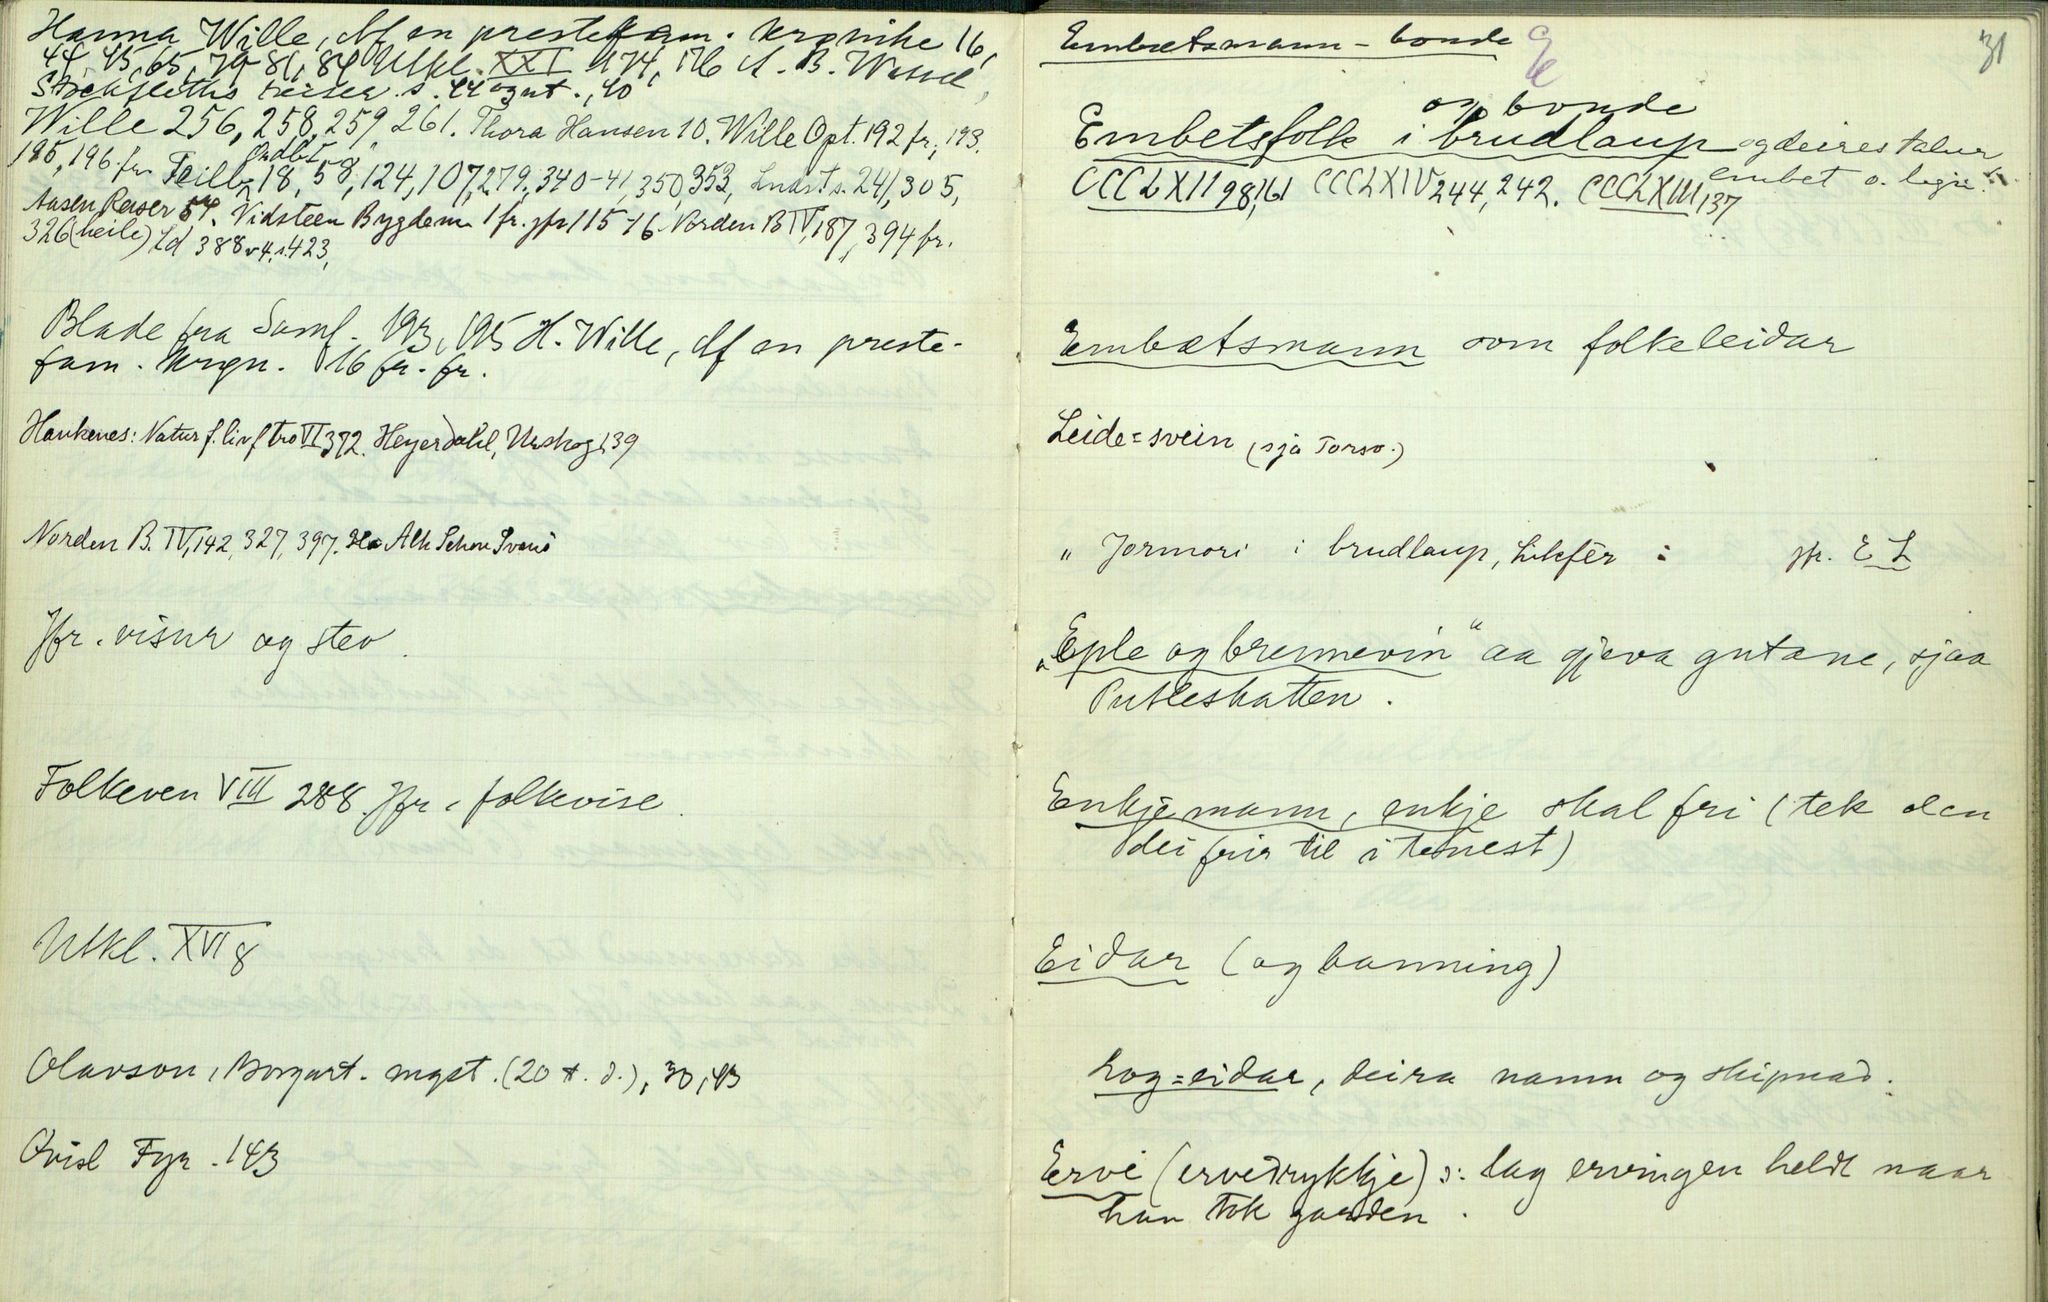 Hanna Wille, Af en prestefam. Krønike 16,
44, 45, 65, 79-81, 84 Utkl. XXI 174, 176 A. B. Wessel,
Stockfleths reiser s. 44 og nt., 40
Wille 256, 258, 259, 261. Thora Hansen 10. Wille Opt. 192 fr., 193.
195, 196. fr. Feilb. Ordbt. 18, 58, 124, 107, 279, 340-41, 350, 353, Lndst s. 241, 305,
Aasen Reiser 54. Vidsteen Bygdem 1 fr. jfr 115-16 Norden B IV, 187, 394 fr.
326 (heile) Ld 388 v 4. s. 423,
Blade fra Saml. 193, 195 H. Wille, Af en preste-
fam. Krøn. 16 fr. fr.
Haukenes: Natur f.liv f tro VI 372. Heyerdahl, Urskog 139
Norden B. IV, 142, 327, 397. Alh Schou Svanö
Jfr. visur og stev.
Folkeven VIII 288. Jfr. folkevise.
Utkl. XVI 8
Olavson, Borgart. mgst. (20 t. d.), 30, 43
Qvisl Fyr. 143
31
Embætsmann - bonde
E
og bonde
Embetsfolk i brudlaup og deires talar
embet o. logn.
CCCLXII 98, 161 CCCLXIV 244, 242. CCCLXIII 137
Embætsmann som folkeleidar
Leide=svein (sjå Torso.)
" Jormori i brudlaup, likfêr : jfr. E L
"Eple og brennevin" aa gjeva gutane, sjaa
Putleskatten.
Enkjemann, enkje skal fri (tek den
dei frir til i tenest)
Eidar (og banning)
Log=eidar, deira namn og skipnad.
Erve (ervedrykkje) ɔ: lag ervingen heldt naar
han tok garden.